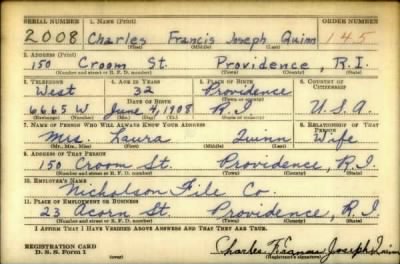 SERIAL NUMBER 1. NAME (Print) ORDER NUMBER
2008 Charles Francis Joseph Quinn 145
(First) (Middle) (Last)
2. ADDRESS (Print)
150 Croom St. Providence, R.I.
(Number and street or R. F. D. number) (Town) (County) (State)
3. TELEPHONE 4. AGE IN YEARS 5. PLACE OF BIRTH 6. COUNTRY OF CITIZENSHIP
West 32 Providence
DATE OF BIRTH
6665 W June 4, 1908 R.I. U.S.A.
7. NAME OF PERSON WHO WILL ALWAYS KNOW YOUR ADDRESS 8. RELATIONSHIP OF THAT PERSON
Mrs. Laura Quinn Wife
(Mr., Mrs., Miss) (First) (Middle) (Last)
9. ADDRESS OF THAT PERSON
150 Croom St. Providence, R.I.
(Number and street or R. F. D. number) (Town) (County) (State)
10. EMPLOYER'S NAME
Nicholson File Co.
11. PLACE OF EMPLOYMENT OR BUSINESS
23 Acorn St. Providence, R.I.
(Number and street or R. F. D. number) (Town) (County) (State)
I AFFIRM THAT I HAVE VERIFIED ABOVE ANSWERS AND THAT THEY ARE TRUE.
REGISTRATION CARD
D. S. S. Form 1
Charles Francis Joseph Quinn
(Registrant's signature)